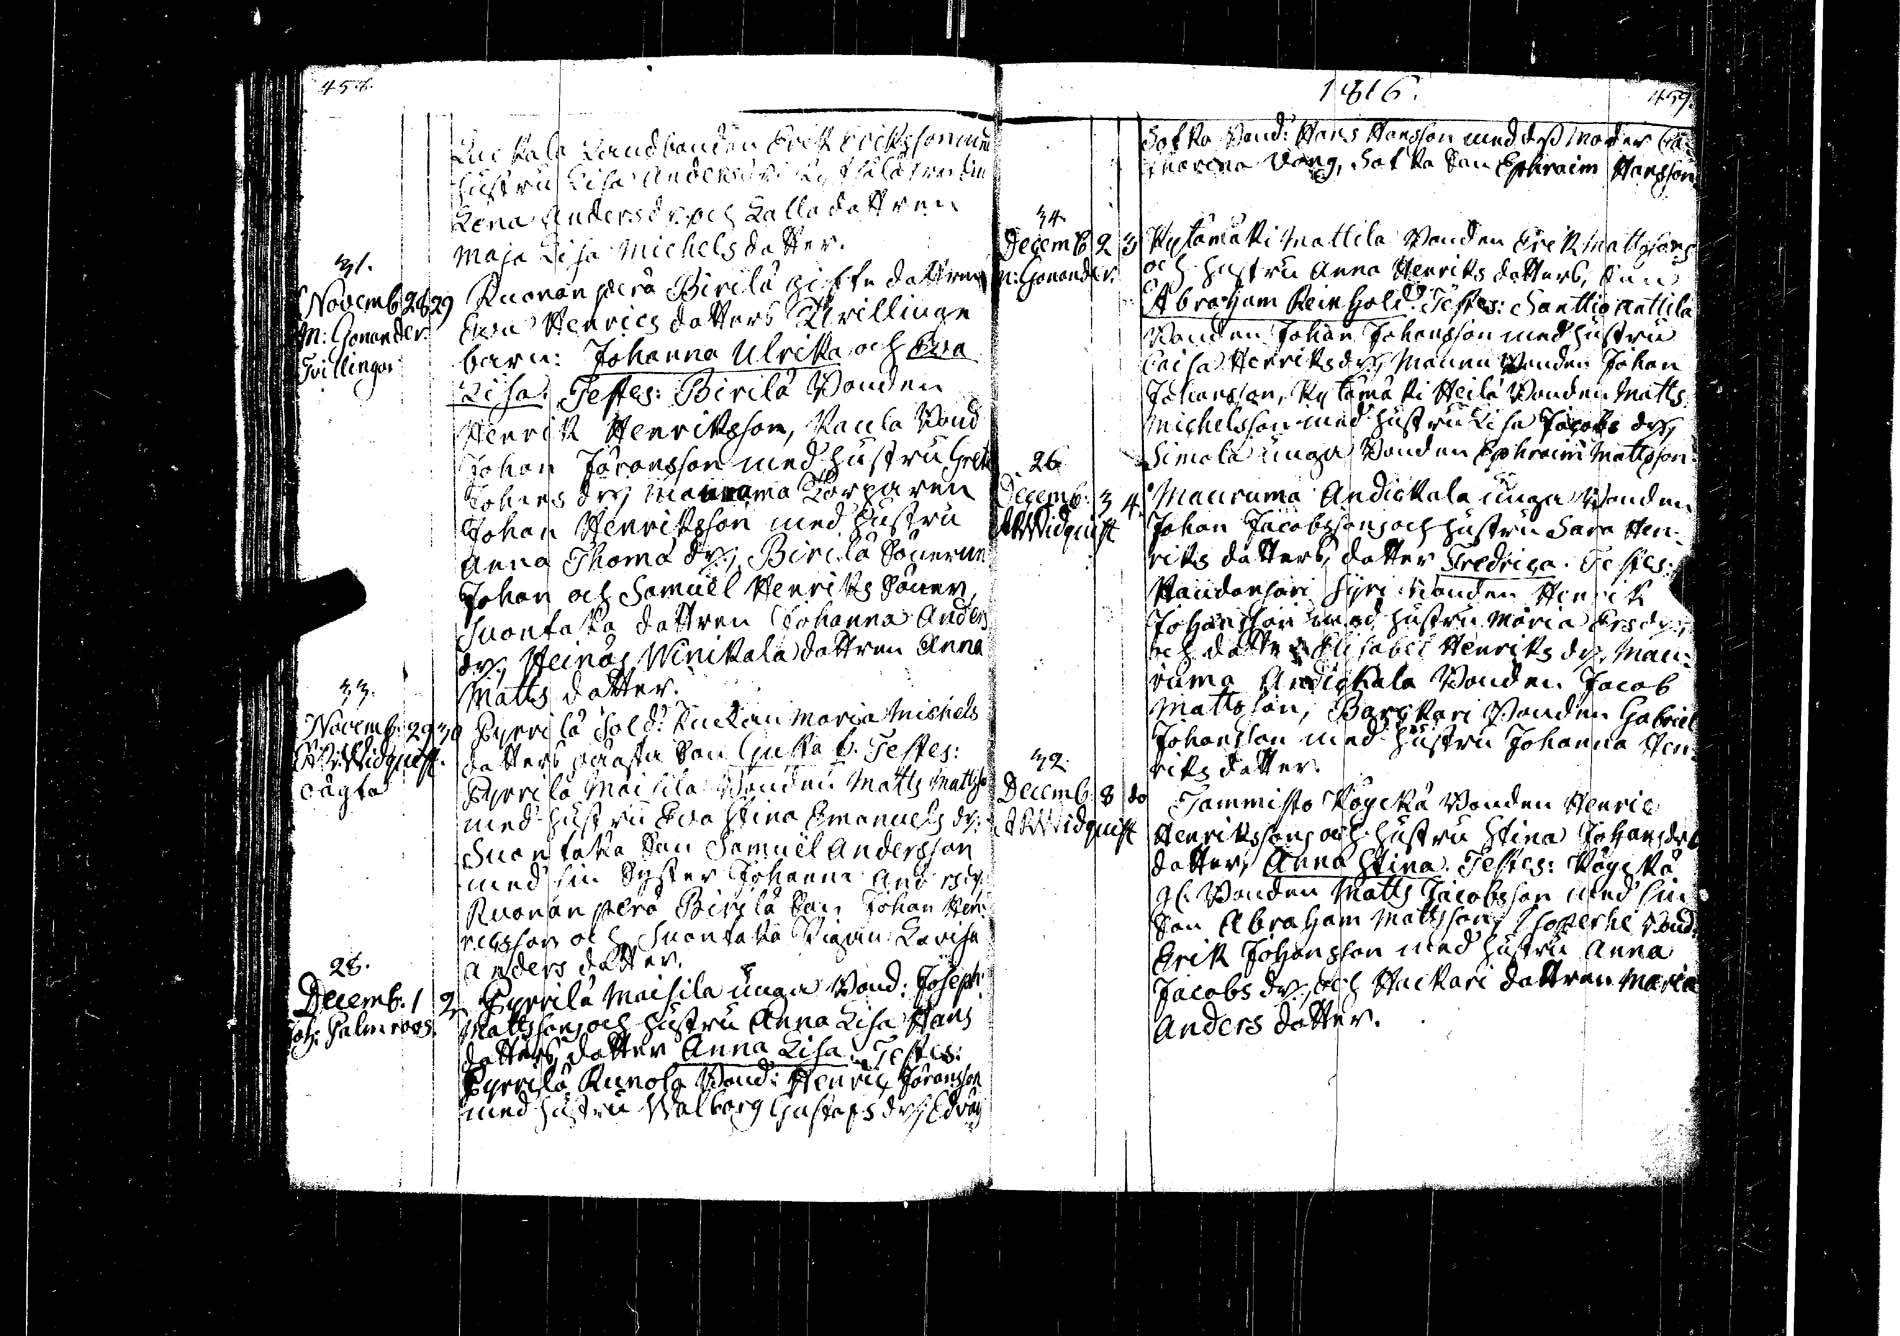 458.
Kuckala Landbonden Erik Eriksson med
hustru Lisa Andersdr:
Lena Andersdr: och Kalla dottren
Maja Lisa Michelsdotter.
31.
Novemb: 28 29
M: Gonander.
Tvillingar
Kuonanperä Birilä gifte dottren
Ewa Henrics dotters Tvillinge
barn: Johanna Ulrika och Eva
Lisa. Testes: Birilä Bonden
Henrik Henriksson, Kaula Bond
Johan Göransson med hustru Gret
Johans dr; Mauruma Torparen
Johan Henriksson med hustru
Anna Thomä dr; Birilä Sönerne
Johan och Samuel Henriks Söner,
Suontaka dottren Johanna Anders
dr; Heinäs Winikala dottren Anna
Matts dotter.
33.
Novemb: 29 30
Widquist.
oägta
Pyrrilä Sold: Enckan Maria Michels
dotters oäckta Son Gustaf. Testes:
Pyrrilä Maisila Bonden Matts Mattss
med hustru Eva Stina Emanuels dr:
Suontaka Son Samuel Andersson
med sin Syster Johanna And rs dr
Kuonanperä Birilä Son Johan Hen-
ricsson och Suontaka Pigan Lovisa
Anders dotter.
28.
Decemb. 1 2
Joh: Palmroos.
Pyrrilä Maisila unga Bond: Joseph
Mattssons och hustru Anna Lisa Hans
dotters, dotter Anna Lisa. Testes:
Pyrrilä Kunola Bond: Henric Göransson
med hustru Walborg Gustafs dr;
1816.
459
Sotka Bond: Hans Hansson med dess Moder Ca-
tharina Sotka Son Ephraim Hansson
34.
Decemb 2 3
M: Gonander.
Kylämäki Mattila Bonden Erik Mattssons
och hustru Anna Henriks dotters, Son
Abraham Reinhold. Testes: Santtio Anttila
Bonden Johan Johansson med hustru
Caisa Henriks dr; Mannu Bonden Johan
Johansson, Kylämäki Heilä Bonden Matts
Michelsson med hustru Lisa Jacobs dr;
Simola unga Bonden Ephraim Mattsson
26.
Decemb: 3 4.
Widquist
Mauruma Andickala unga Bonden
Johan Jacobssons och hustru Sara Hen-
riks dotters, dotter Fredrica. Testes:
Bonden Henrik
Johansson med hustru Maria Ersdr;
och dotter Elisabet Henriks dr. Mau-
ruma Andickala Bonden Jacob
Mattsson, Barckari Bonden Gabriel
Johansson med hustru Johanna Hen-
riks dotter.
32.
Decemb 8 do
Widquist
Tammisto Böpickä Bonden Henric
Henrikssons och hustru Stina Johans
dotter, Anna Stina. Testes:
gl. Bonden Matts Jacobsson med sin
Son Abraham Mattsson, Bond:
Erik Johansson med hustru Anna
Jacobs dr; och Hackari dottren Maria
Anders dotter.